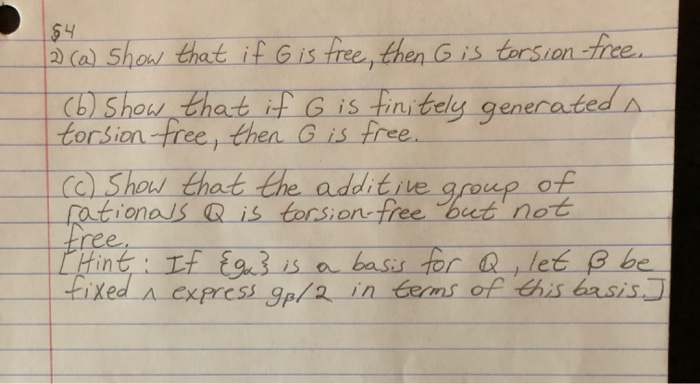 §4
2) (a) Show that if G is free, then G is torsion-free.
(b) Show that if G is finitely generated ∧
torsion-free, then G is free.
(c) Show that the additive group of
rationals Q is torsion-free but not
free.
[Hint: If {gα} is a basis for Q, let β be
fixed ∧ express gβ/2 in terms of this basis.]